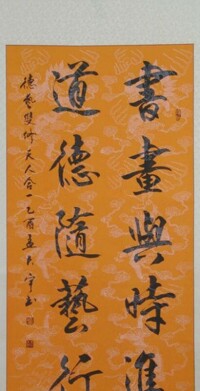 書畫與時進
道德隨藝行
德藝雙修天人合一乙酉孟冬宇書